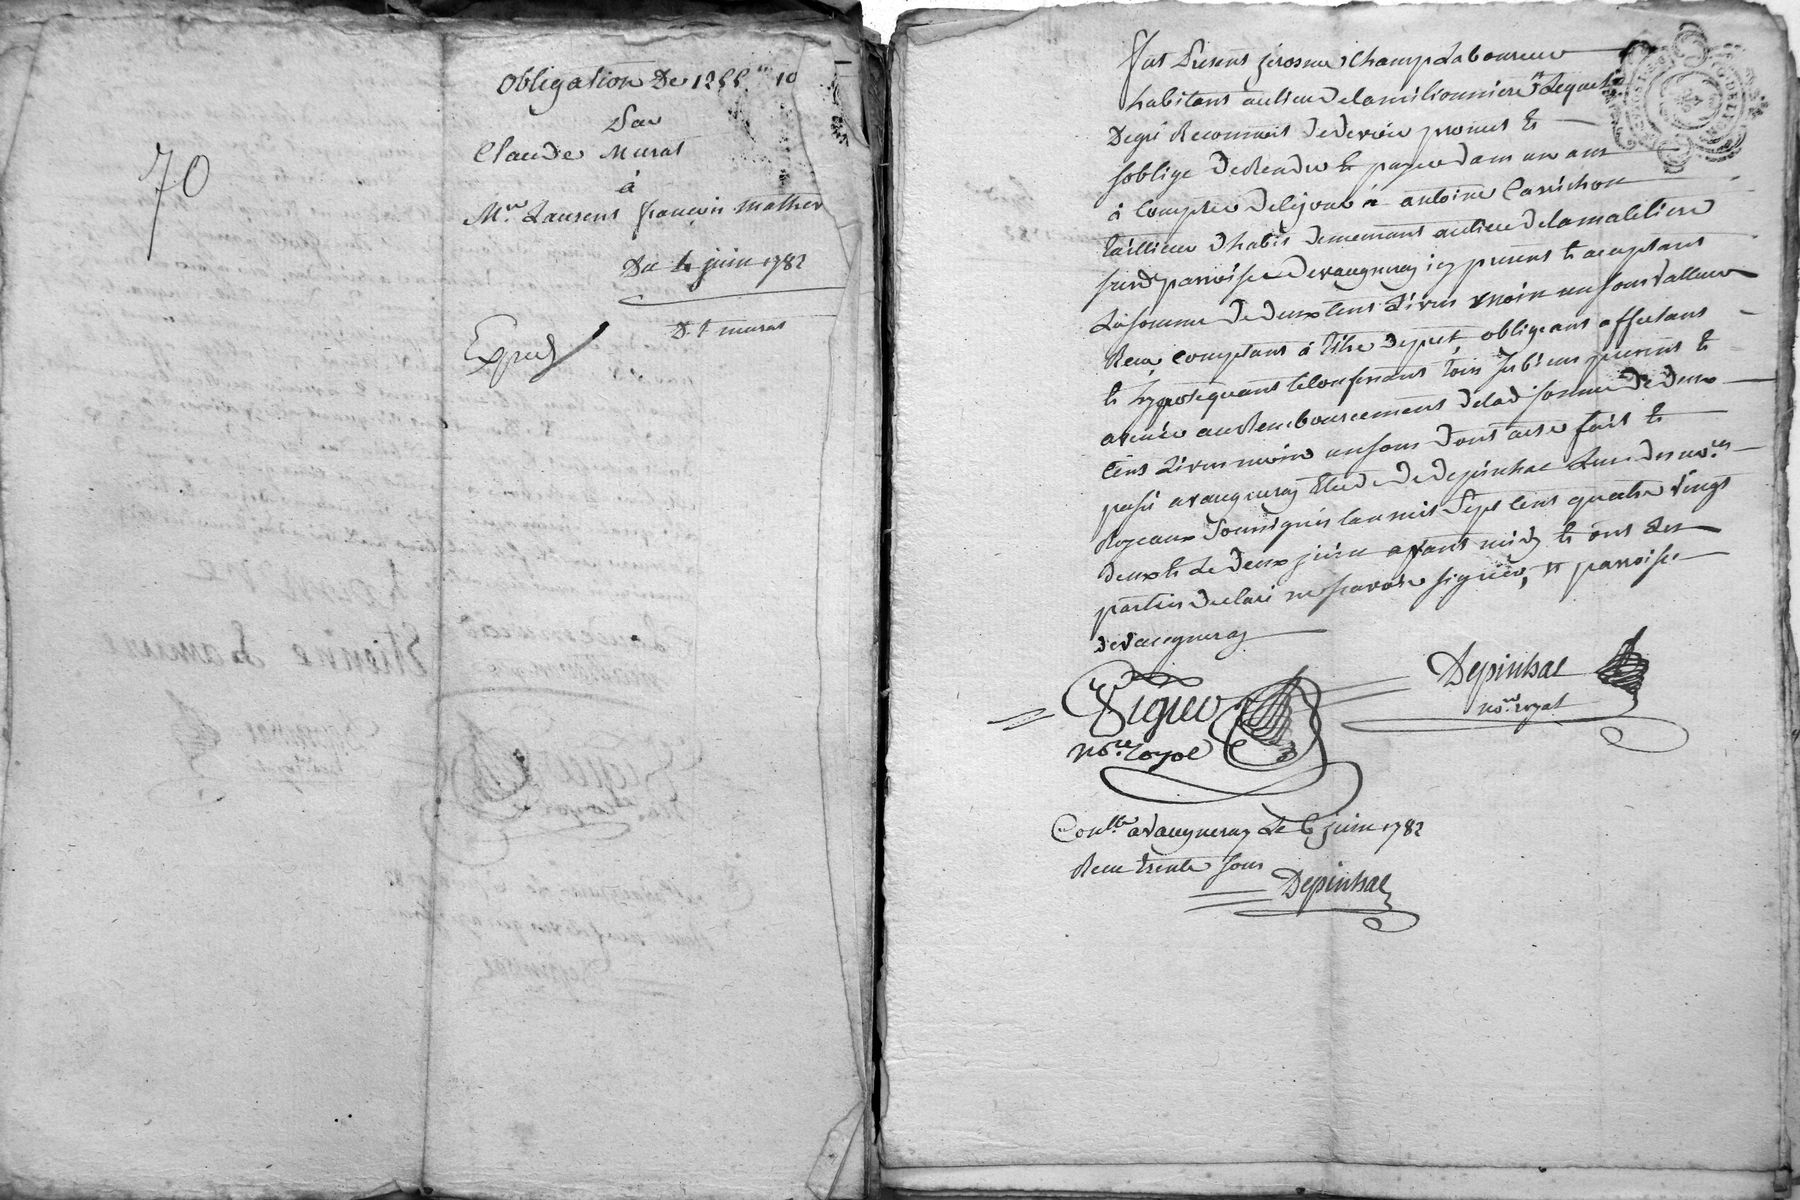 70
Obligation De 1255ˡᵗ 10
Par
Claude Murat
à
Mʳᵉ Laurent françois mathev
Du 4 juin 1782
D. t murat
Exped
fut Present jerosme Champ Laboureur
habitant au lieu delamilionniere ¤ Lequel
Degré Reconnoit Devoir promet et
soblige De Rendre et payer dans un an
à Compter De ce jour à antoine Cavichon
taillieur Dhabit Demeurant au lieu Delamaletiere
susd parroisse De vaugneray icy present et acceptant
La somme De Deux Cens Livres moin un sous valleur
Recu comptant à titre De pret obligeant affectant
et hypotequant Tous biens presens et
avenir au Remboursement De lad somme De Deux
Cens Livres moin un sous Dont acte fait et
passé avaugneray Etude De Depinhac Lun des noʳᵉˢ
Royeaux soussignés Lan mil Sept Cens quatre vingt
Deux et Le Deux juin avant midy et ont Les
parties Declaré ne scavoir signer, ¤ parroisse
De vaugneray
Vigier
noʳᵉ royal
Depinhac
noʳᵉ royal
Conˡˡᵉ avaugneray Le 6 juin 1782
Recu trente sous
Depinhac